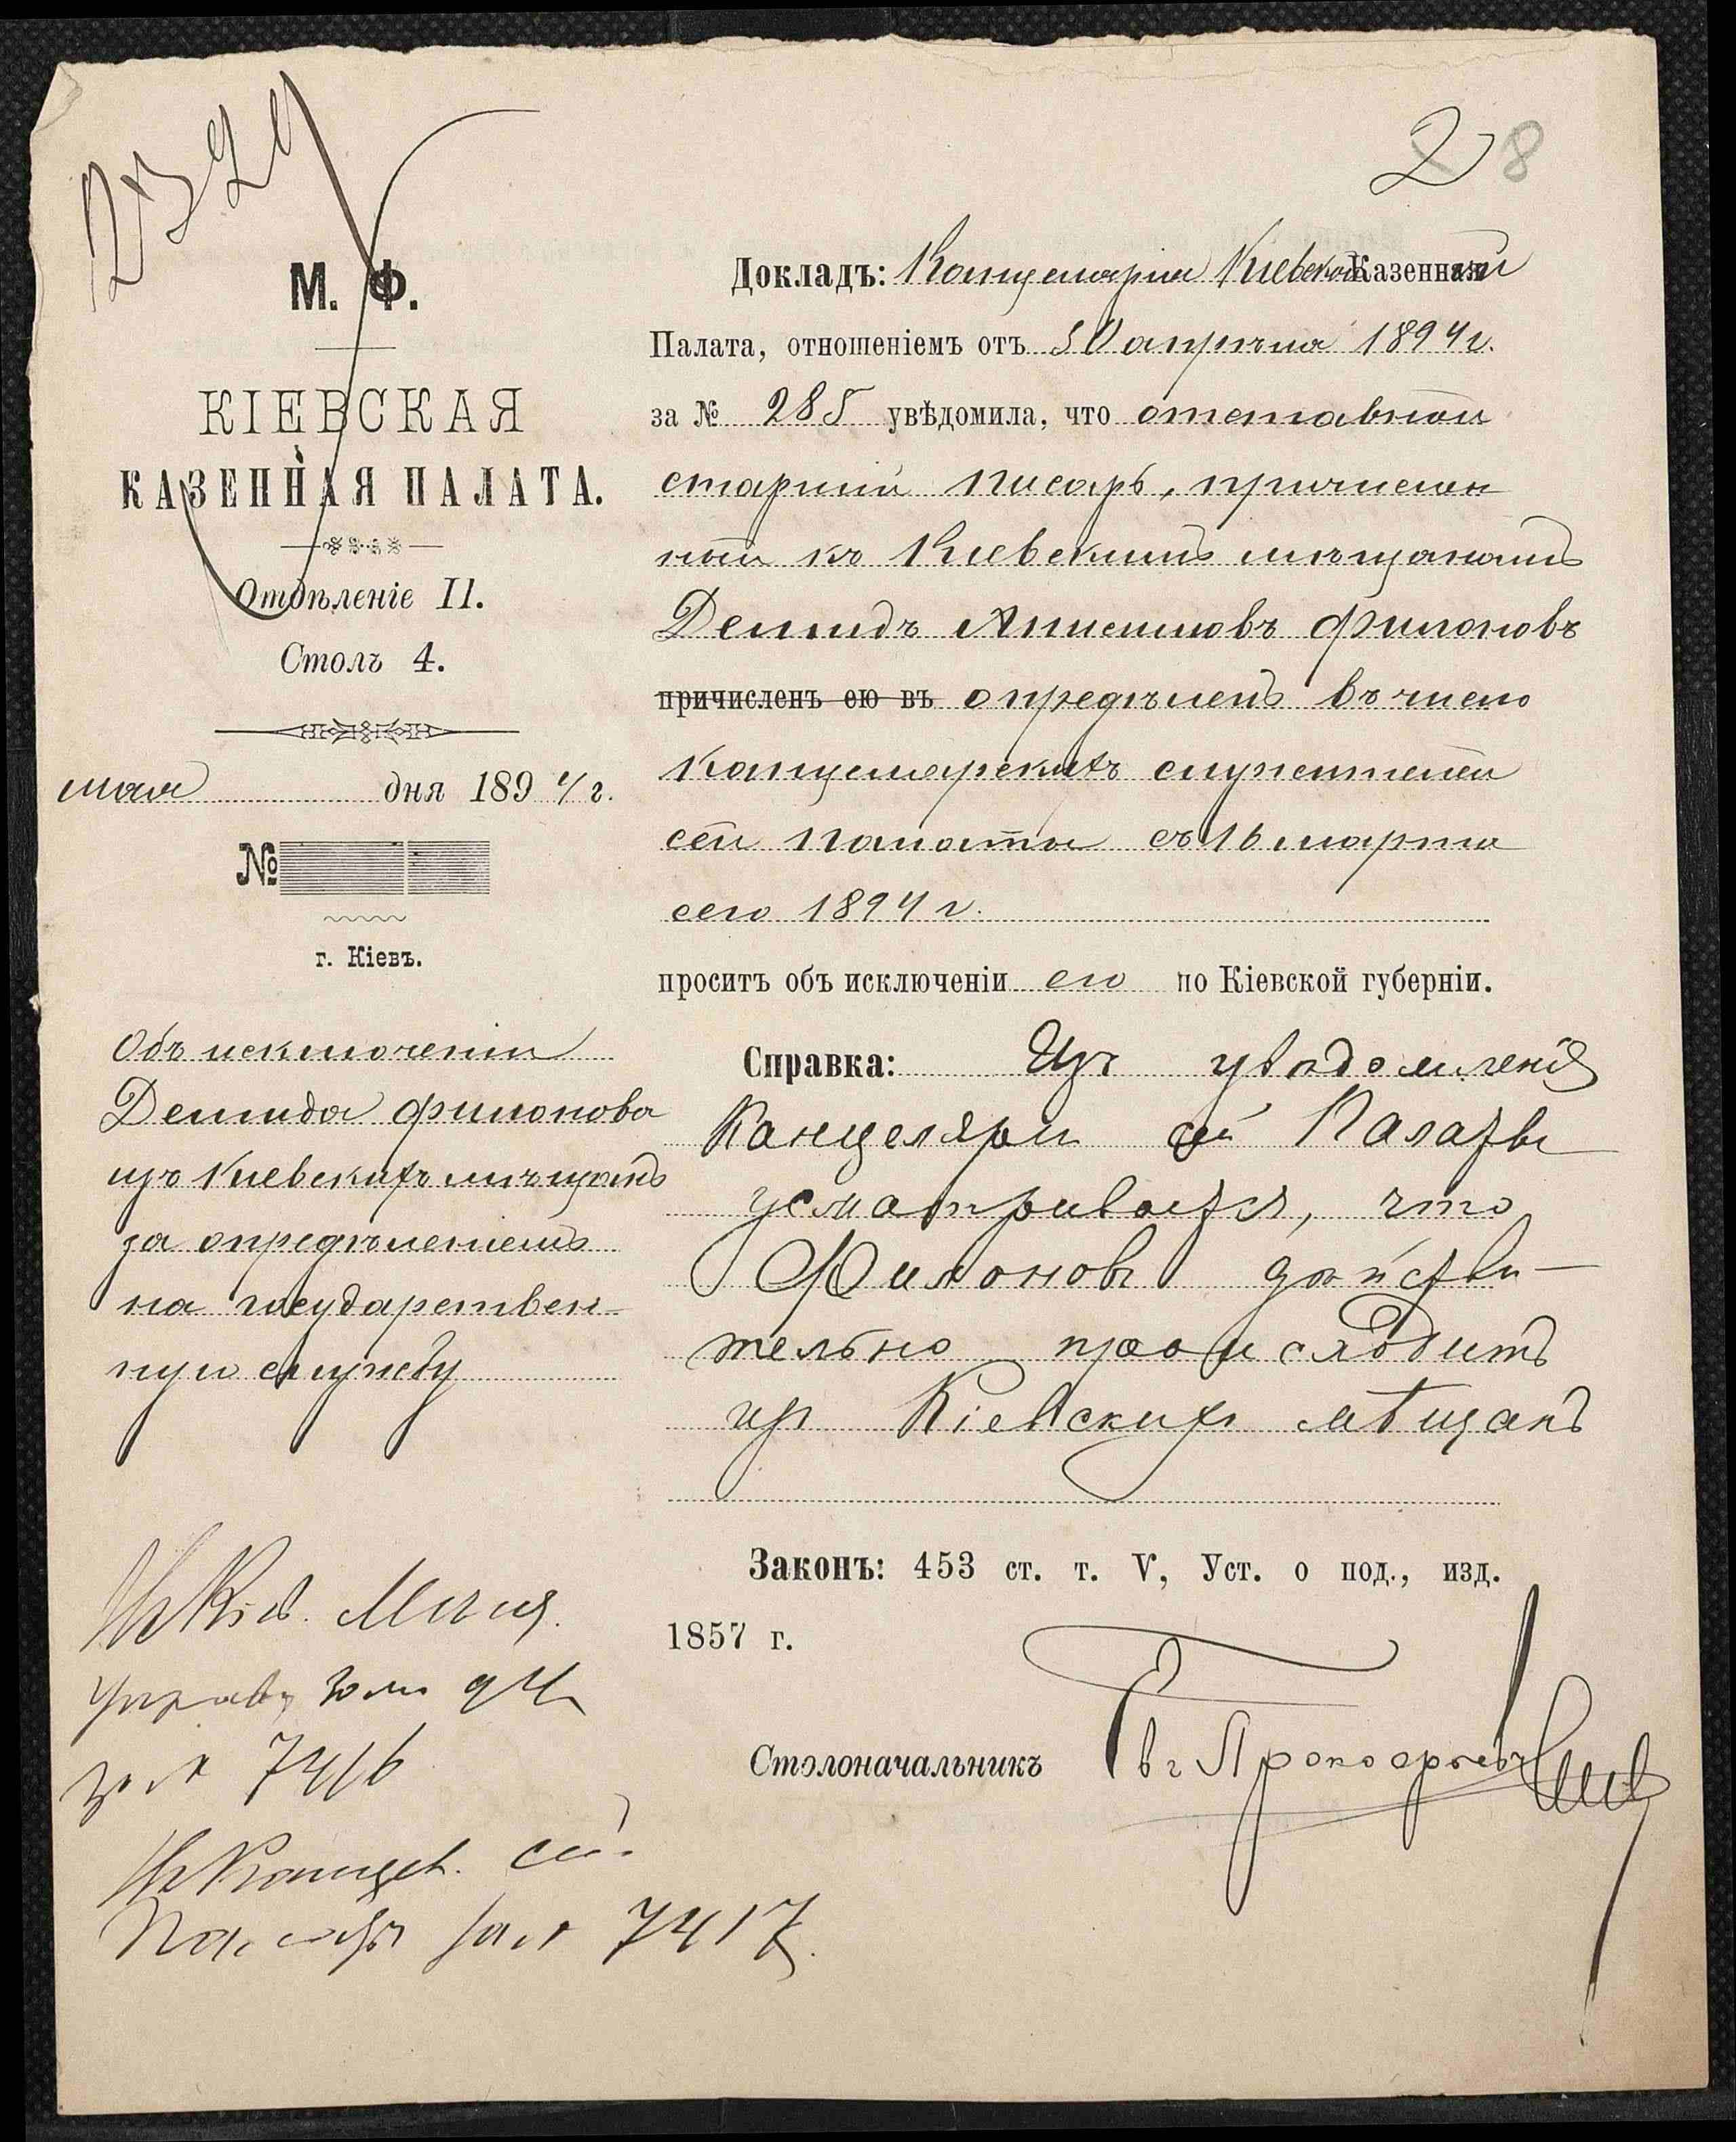 12329
28
М. Ф.
КІЕВСКАЯ
КАЗЕННАЯ ПАЛАТА.
Отдѣленіе II.
Столъ 4.
мая дня 1894 г.
№
г. Кіевъ.
Объ исключеніи
Демида Филонова
изъ Кіевскихъ мѣщанъ
за опредѣленіемъ
на государствен-
ную службу
Въ Кіев. Мѣщ.
управу
за № 7416
Въ Канцел. сей
Палаты за № 7417.
Докладъ: Канцелярія Кіевской Казенной
Палата, отношеніемъ отъ 30 апрѣля 1894 г.
за № 285 увѣдомила, что отставной
старшій писарь, причислен
ный къ Кіевскимъ мѣщанамъ
Демидъ Анисимовъ Филоновъ
причисленъ ею въ опредѣленъ въ число
Канцелярскихъ служителей
сей Палаты съ 16 марта
сего 1894 г.
проситъ объ исключеніи его по Кіевской губерніи.
Справка: Изъ увѣдомленія
Канцеляріи сей Палаты
усматривается, что
Филоновъ дѣйстви-
тельно происходитъ
изъ Кіевскихъ мѣщанъ
Законъ: 453 ст. т. V, Уст. о под., изд.
1857 г.
Столоначальникъ Прокофьевъ